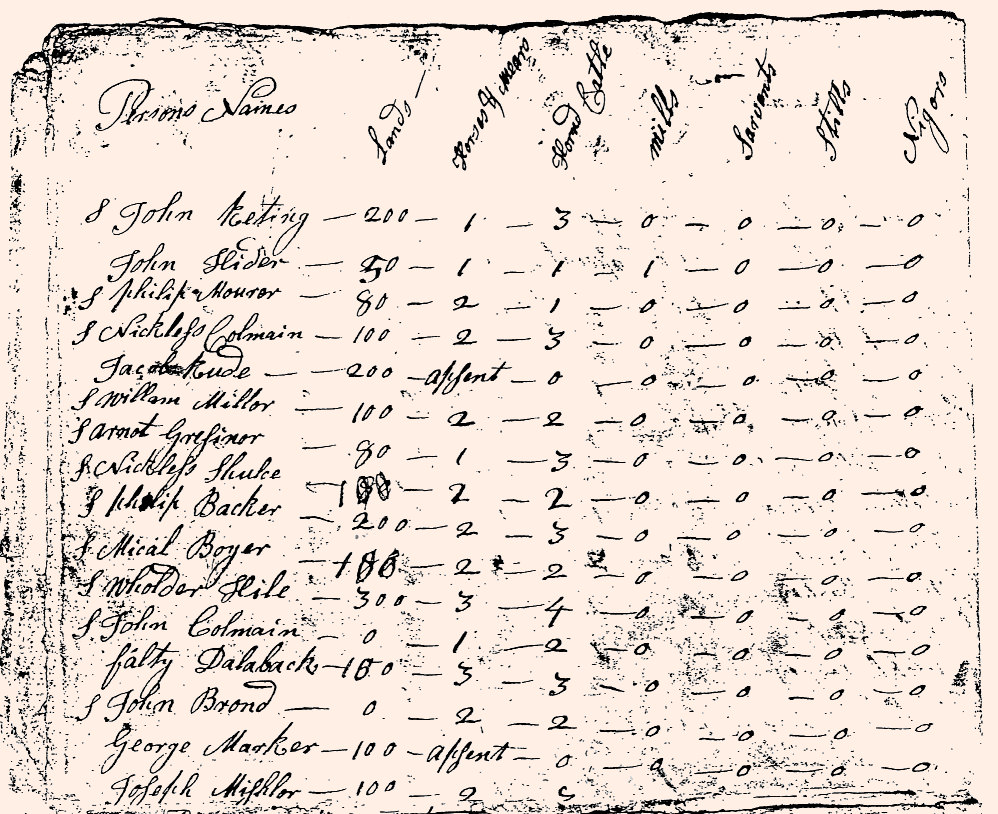 Persons Names Lands Horses & Mears Horned Catle mills Sarvants Stills Nigors
S John Keting — 200 — 1 3 — 0 — 0 — 0 — 0
John Slider — 50 — 1 — 1 — 1 — 0 — 0 — 0
S philip Mouror — 80 — 2 — 1 — 0 — 0 — 0 — 0
S Nickless Colmain — 100 — 2 — 3 — 0 — 0 — 0 — 0
Jacob Rude — 200 — Absent — 0 — 0 — 0 — 0 — 0
S Willam Millor — 100 — 2 — 2 — 0 — 0 — 0 — 0
S Arnot Gresinor — 80 — 1 — 3 — 0 — 0 — 0 — 0
S Nickless Shuke — 100 — 2 — 2 — 0 — 0 — 0 — 0
S philip Backer — 200 — 2 — 3 — 0 — 0 — 0 — 0
S Mical Boyer — 100 — 2 — 2 — 0 — 0 — 0 — 0
S Wholder Hile — 300 — 3 — 4 — 0 — 0 — 0 — 0
S John Colmain — 0 — 1 — 2 — 0 — 0 — 0 — 0
falty Dalaback — 150 — 3 — 3 — 0 — 0 — 0 — 0
S John Brond — 0 — 2 — 2 — 0 — 0 — 0 — 0
George Marker — 100 — Absent — 0 — 0 — 0 — 0 — 0
Joseph Mishlor — 100 — 2